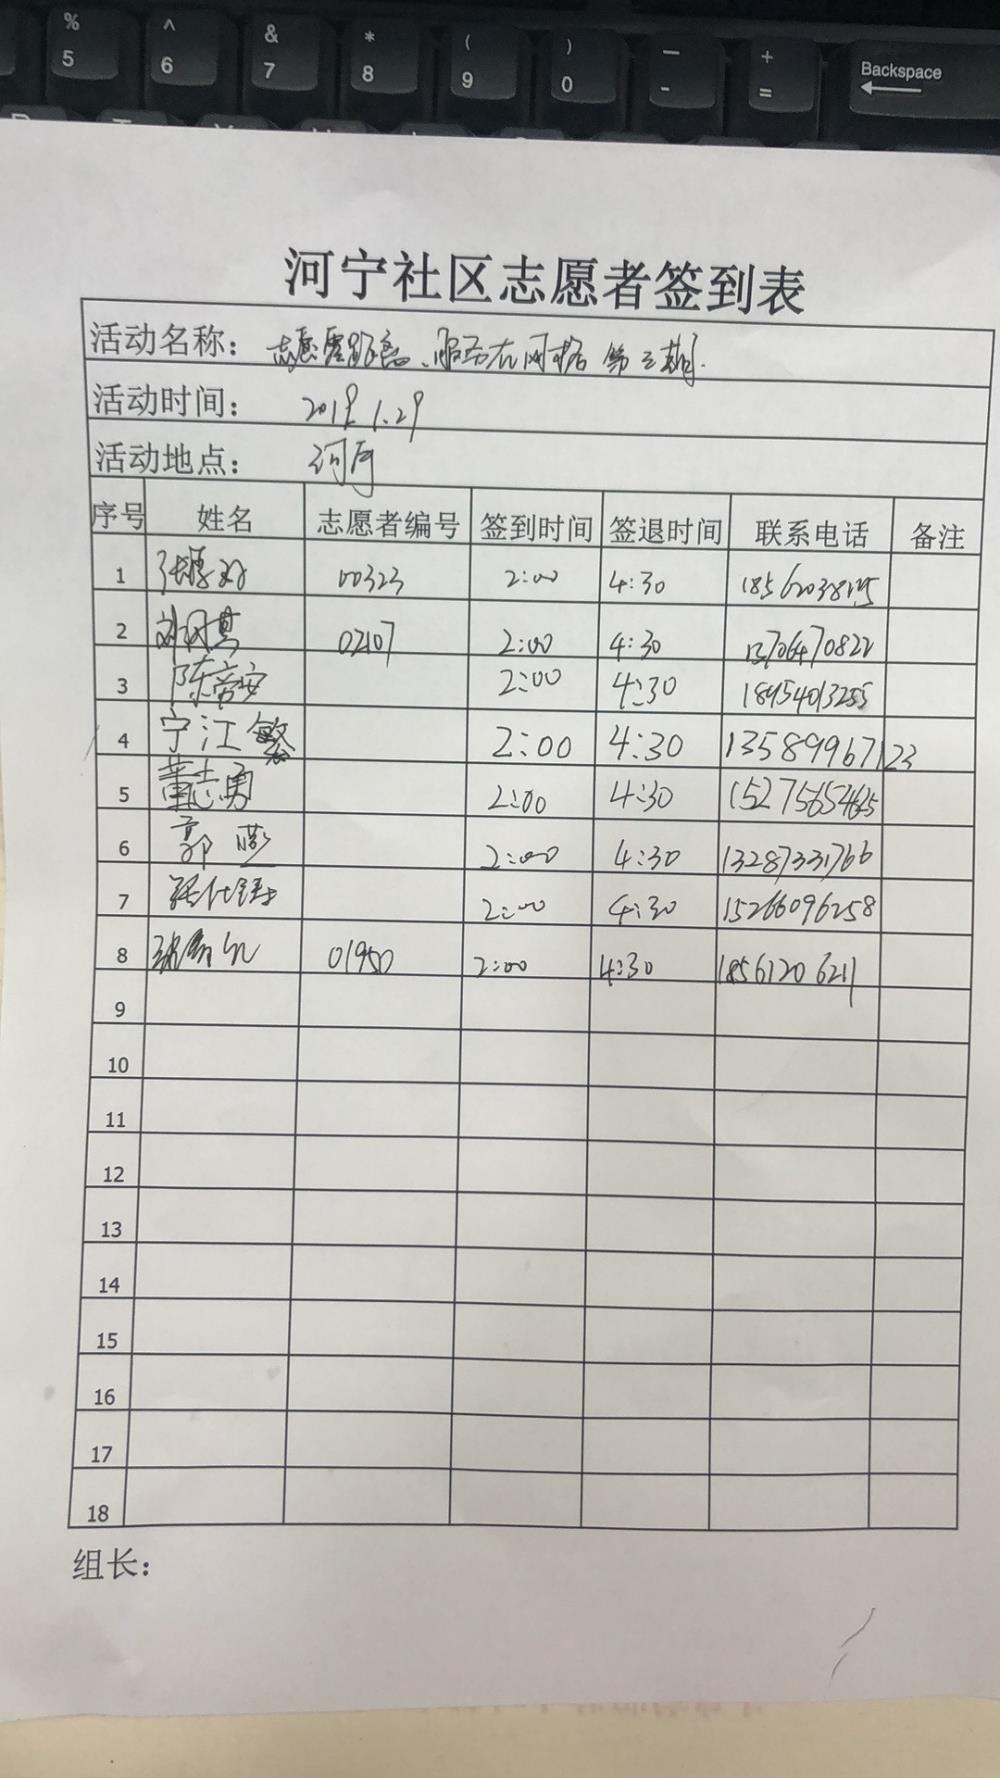 % ^ & * ( ) — +
5 6 7 8 9 0 - = Backspace
河宁社区志愿者签到表
活动名称： 服务在网格 第三期.
活动时间： 2019.1.29
活动地点： 河宁
序号 姓名 志愿者编号 签到时间 签退时间 联系电话 备注
1 00323 2:00 4:30
2 02107 2:00 4:30 13706470822
3 陈帝安 2:00 4:30 18954013255
4 宁江繁 2:00 4:30 13589967123
5 董志勇 2:00 4:30
6 郭 2:00 4:30 13287331766
7 2:00 4:30 15266096258
8 01950 2:00 4:30 18561206211
9
10
11
12
13
14
15
16
17
18
组长：